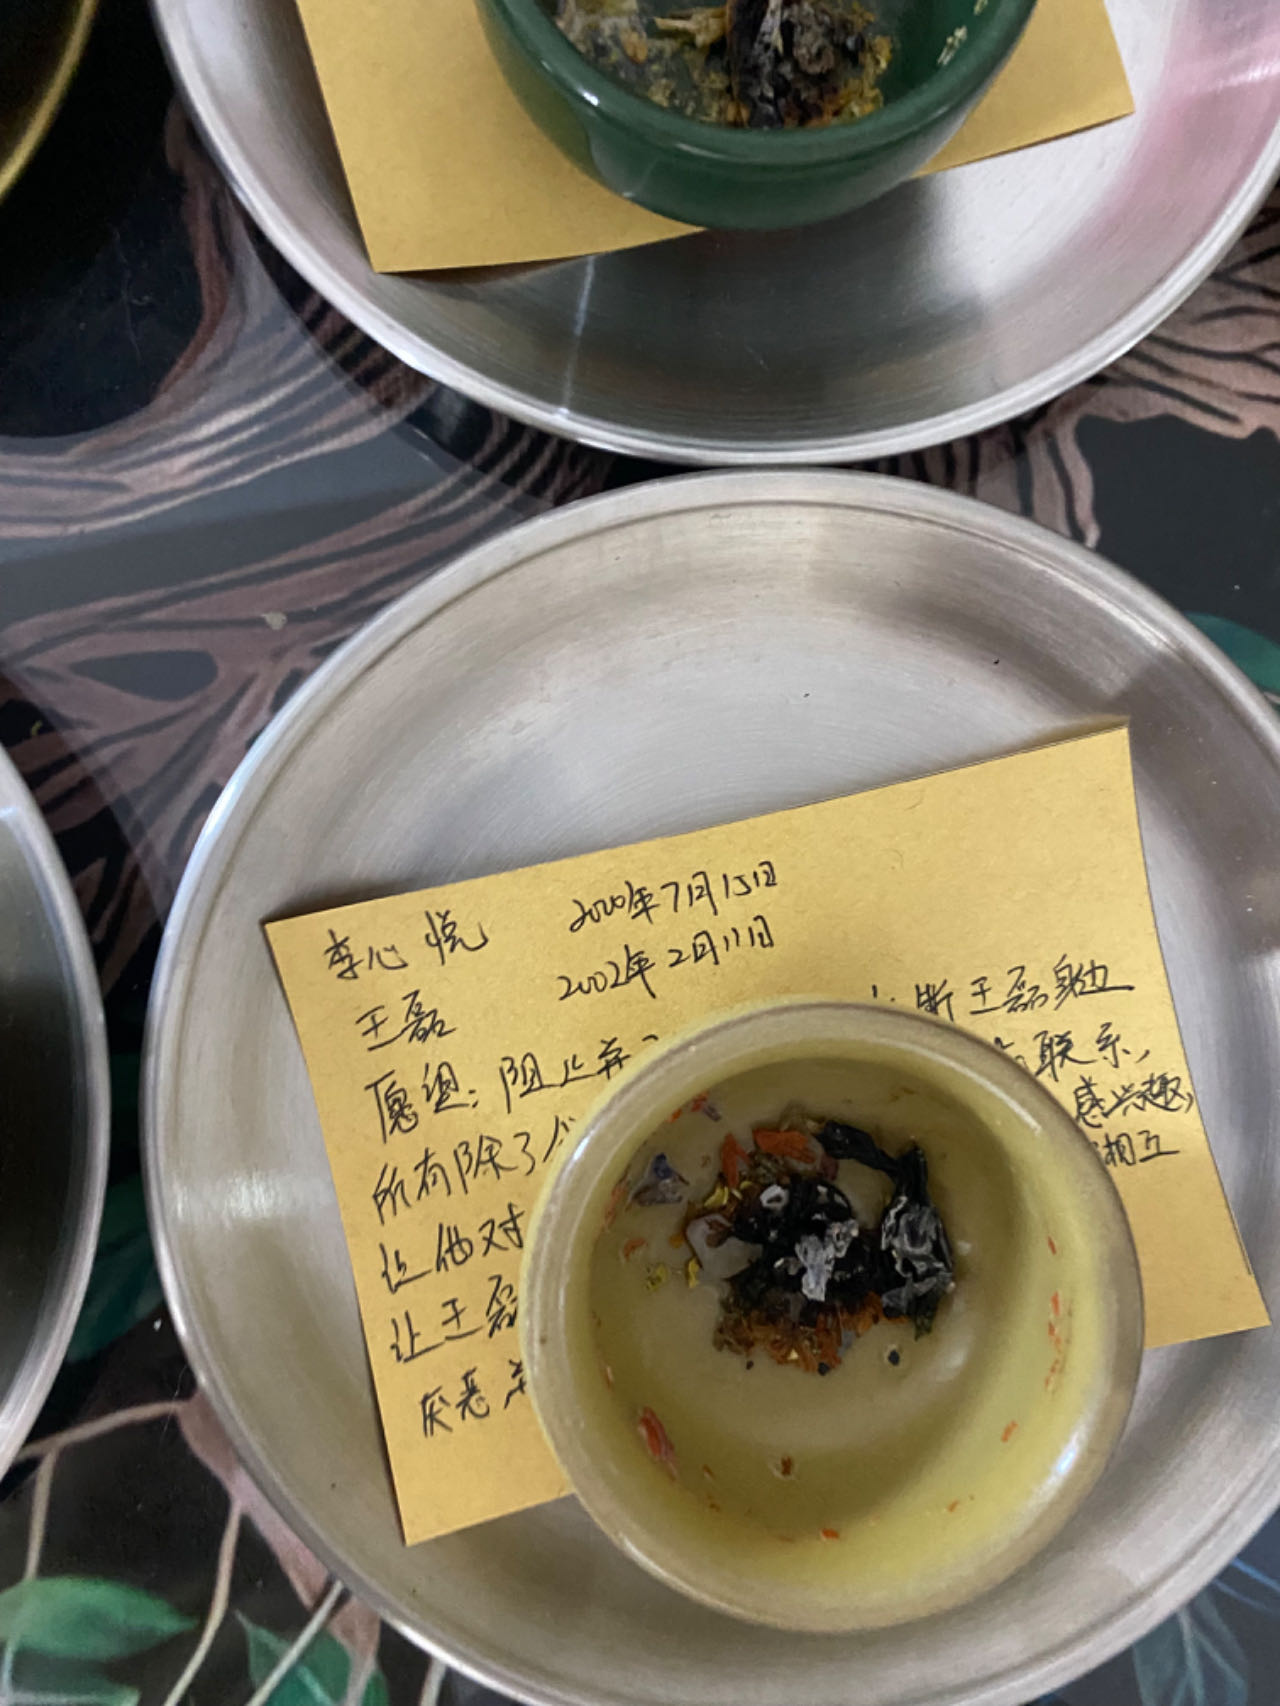 李心悦 2000年7月15日
王磊 2002年2月11日
愿望：阻止并 断王磊身边
所有除了 联系，
让他对 感兴趣，
让王磊 相互
厌恶